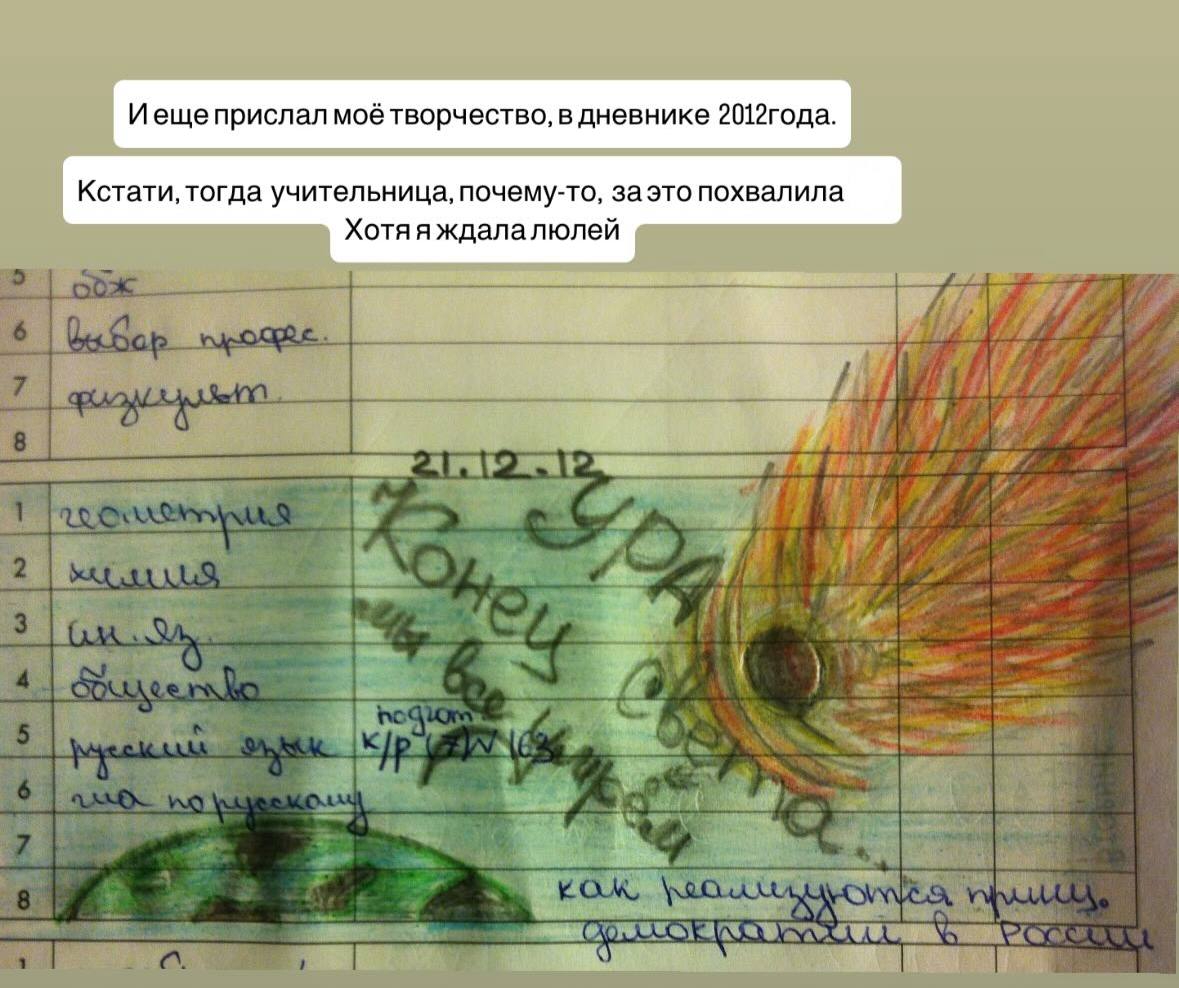 И еще прислал моё творчество, в дневнике 2012года.
Кстати, тогда учительница, почему-то, за это похвалила
Хотя я ждала люлей
5 обж
6 выбор професс.
7 физкульт.
8
21.12.12
УРА
Конец Света...
мы все умрём
1 геометрия
2 химия
3 ин. яз.
4 общество
5 русский язык
подгот.
к/р (7) N 163
6 гиа по русскому
7
8
как реализуются принц.
демократии в России
1